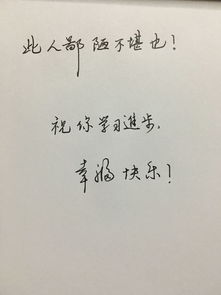 此人鄙陋不堪也！
祝你学习进步，
幸福快乐！